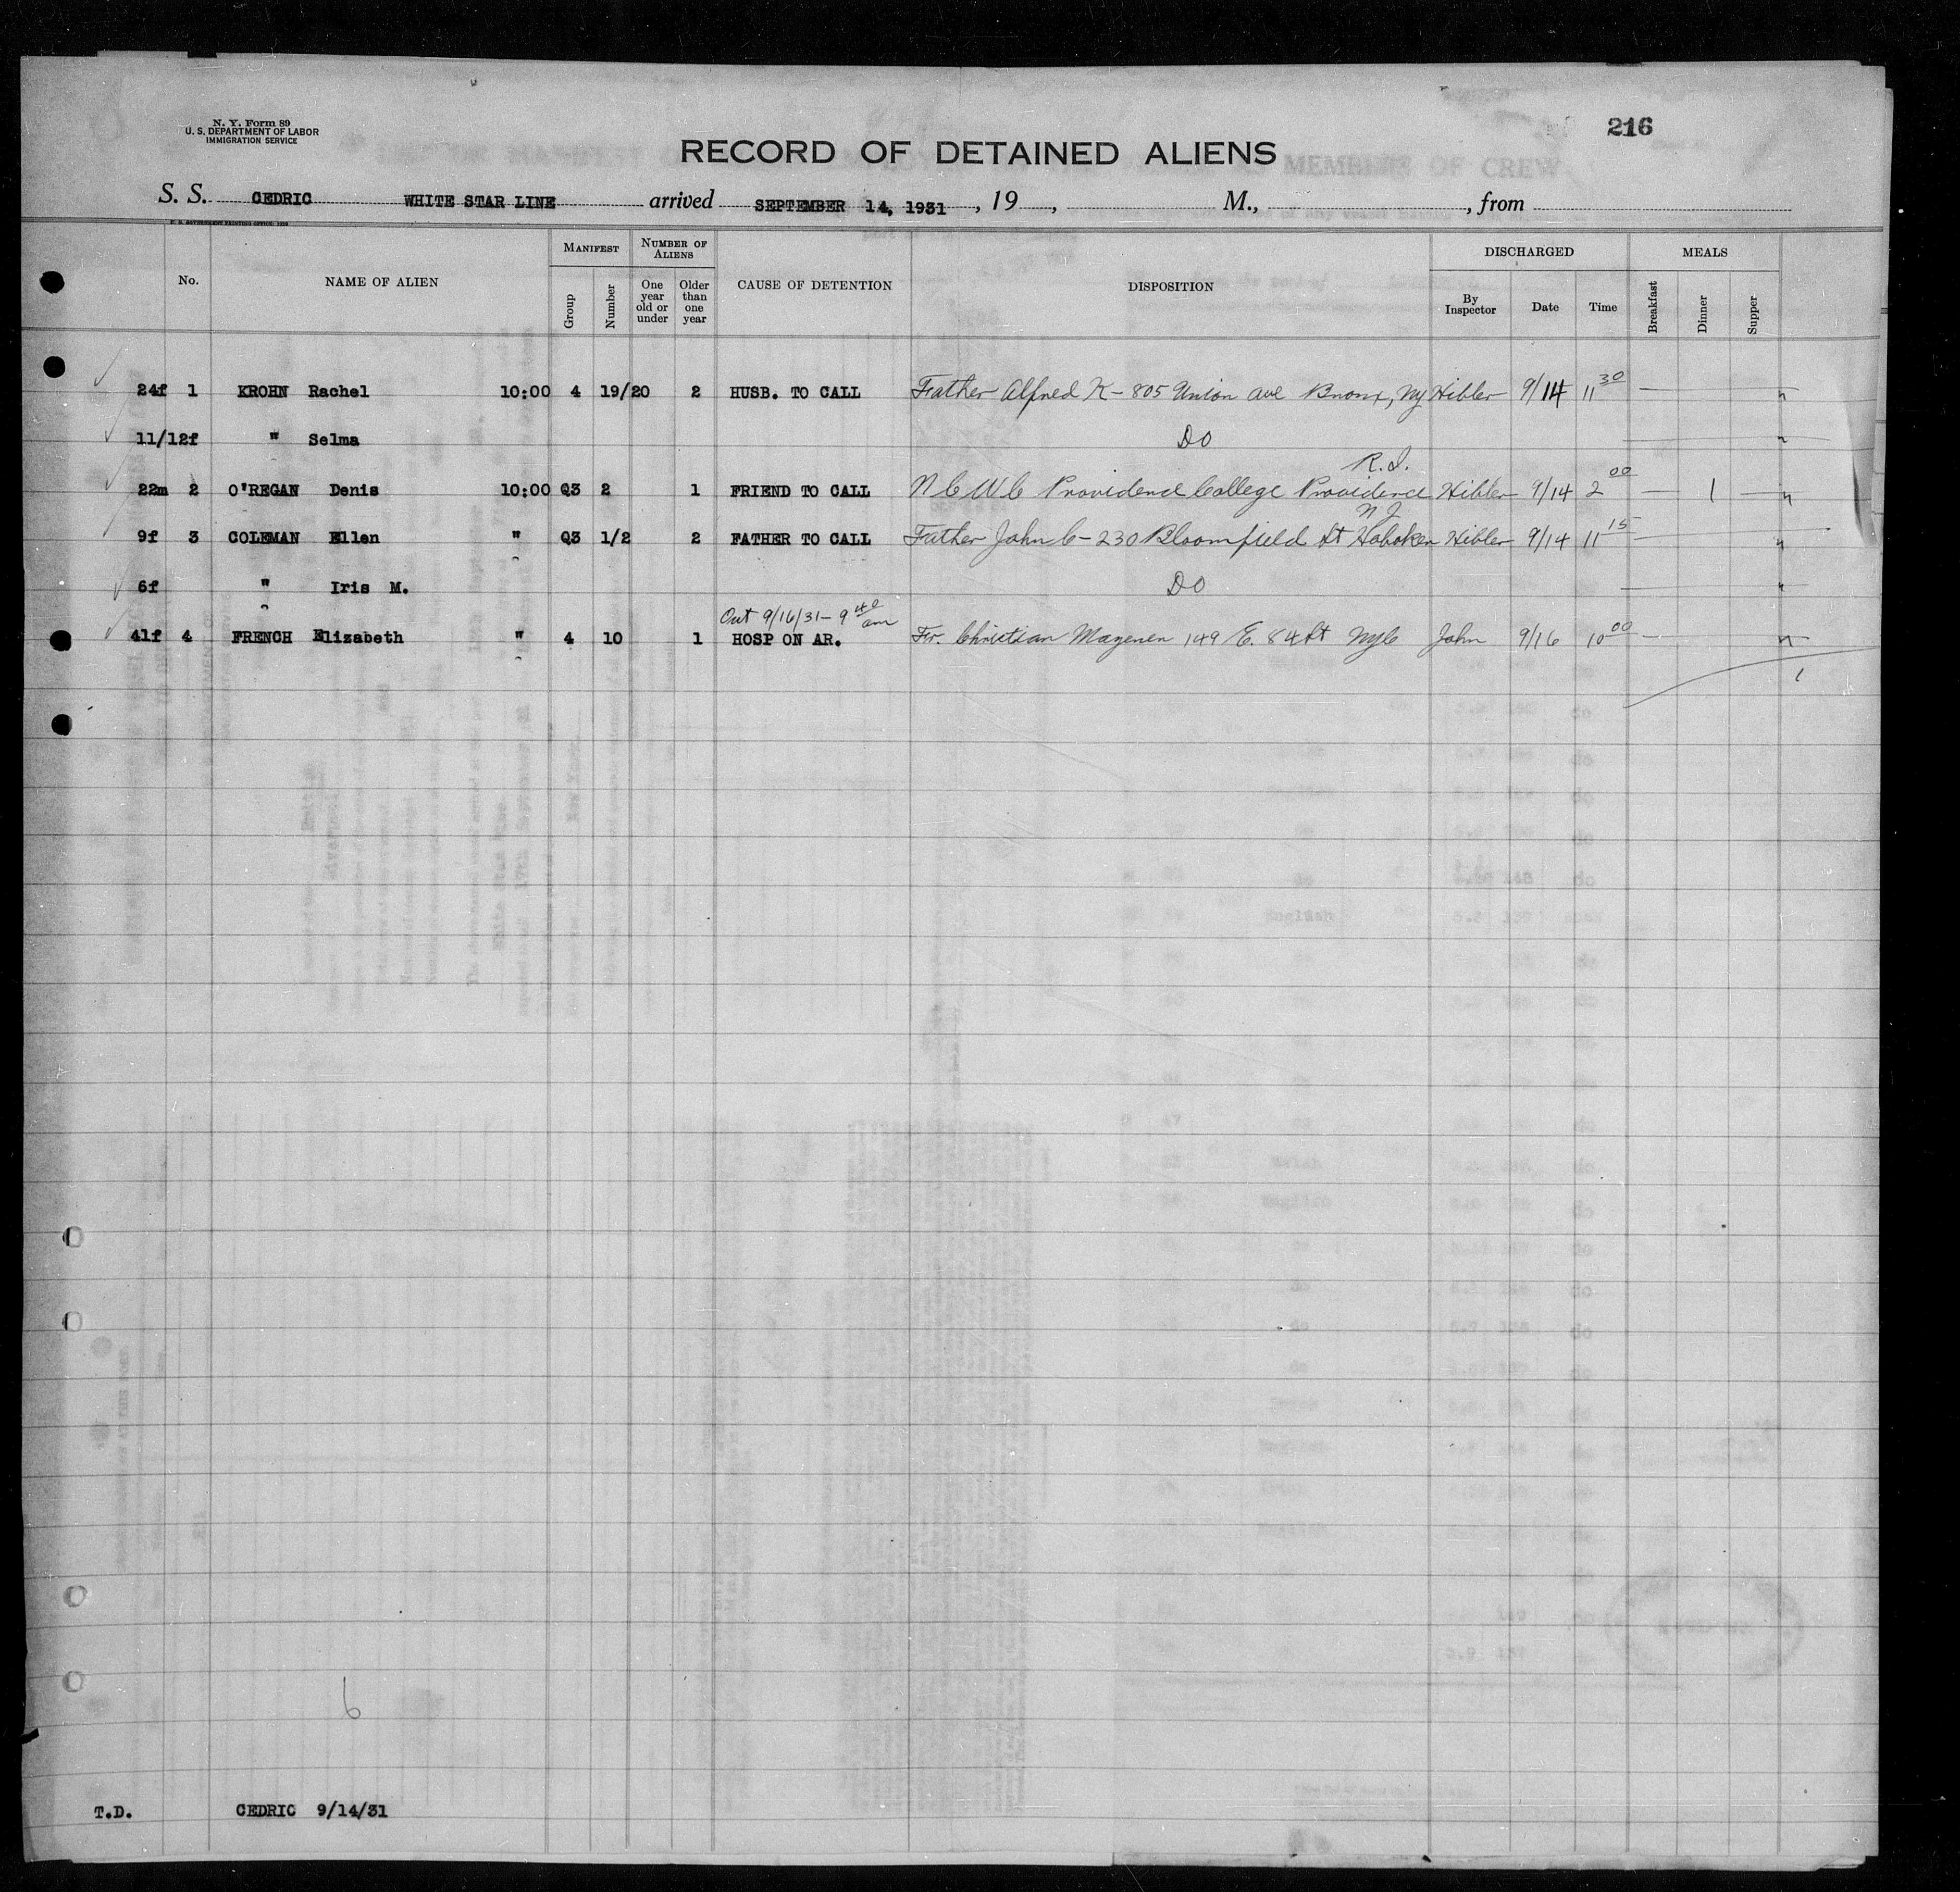 N. Y. Form 89
U. S. DEPARTMENT OF LABOR
IMMIGRATION SERVICE
216
RECORD OF DETAINED ALIENS
S. S. CEDRIC WHITE STAR LINE arrived SEPTEMBER 14, 1931, 19 , M., , from
No. NAME OF ALIEN MANIFEST Group Number NUMBER OF ALIENS One year old or under Older than one year CAUSE OF DETENTION DISPOSITION DISCHARGED By Inspector Date Time MEALS Breakfast Dinner Supper
24f 1 KROHN Rachel 10:00 4 19/20 2 HUSB. TO CALL Father Alfred K - 805 Union ave Bronx, Ny Hibler 9/14 11 30 — "
11/12f " Selma DO — "
R.I.
22m 2 O'REGAN Denis 10:00 Q3 2 1 FRIEND TO CALL N C W C Providence College Providence Hibler 9/14 2 00 — 1 — "
N J
9f 3 COLEMAN Ellen " Q3 1/2 2 FATHER TO CALL Father John C - 230 Bloomfield St Hoboken Hibler 9/14 11 15 — "
6f " Iris M. DO — "
Out 9/16/31 - 9 40 am
41f 4 FRENCH Elizabeth " 4 10 1 HOSP ON AR. Fr. Christian 149 E. 84 St NyC John 9/16 10 00 — "
1
6
T.D. CEDRIC 9/14/31